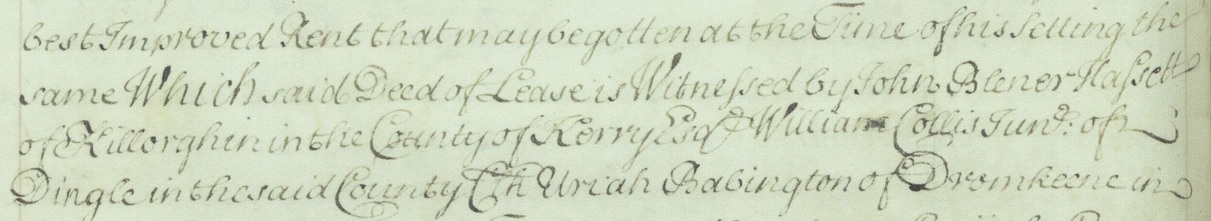 best Improved Rent that may be gotten at the Time of his Setting the
same Which said Deed of Lease is Witnessed by John Blener Hassett
of Killorghin in the County of Kerry Esqr William Collis Junr: of
Dingle in the said County Clk Uriah Babington of Dromkeene in